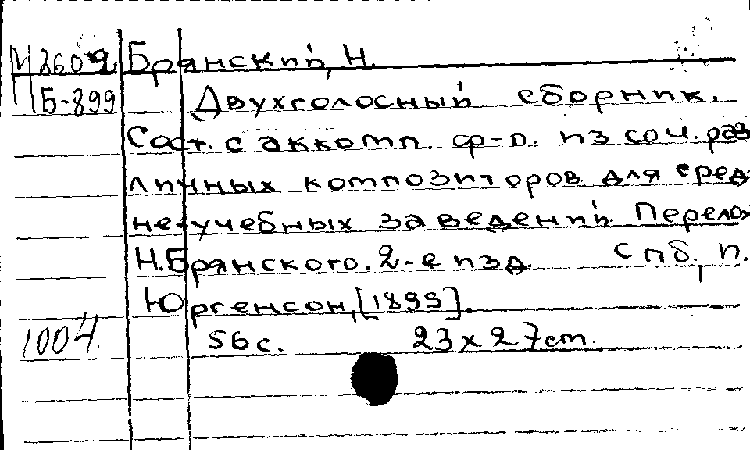 М 2602 Брянский, Н.
Б-899 Двухголосный сборник.
Сост. с аккомп. ф-п. из соч. раз
личных композиторов для сред
не-учебных заведений Перелож
Н. Брянского. 2-е изд СПб, П.
Юргенсон, [1899].
1004 56 с. 23 x 27 cm.